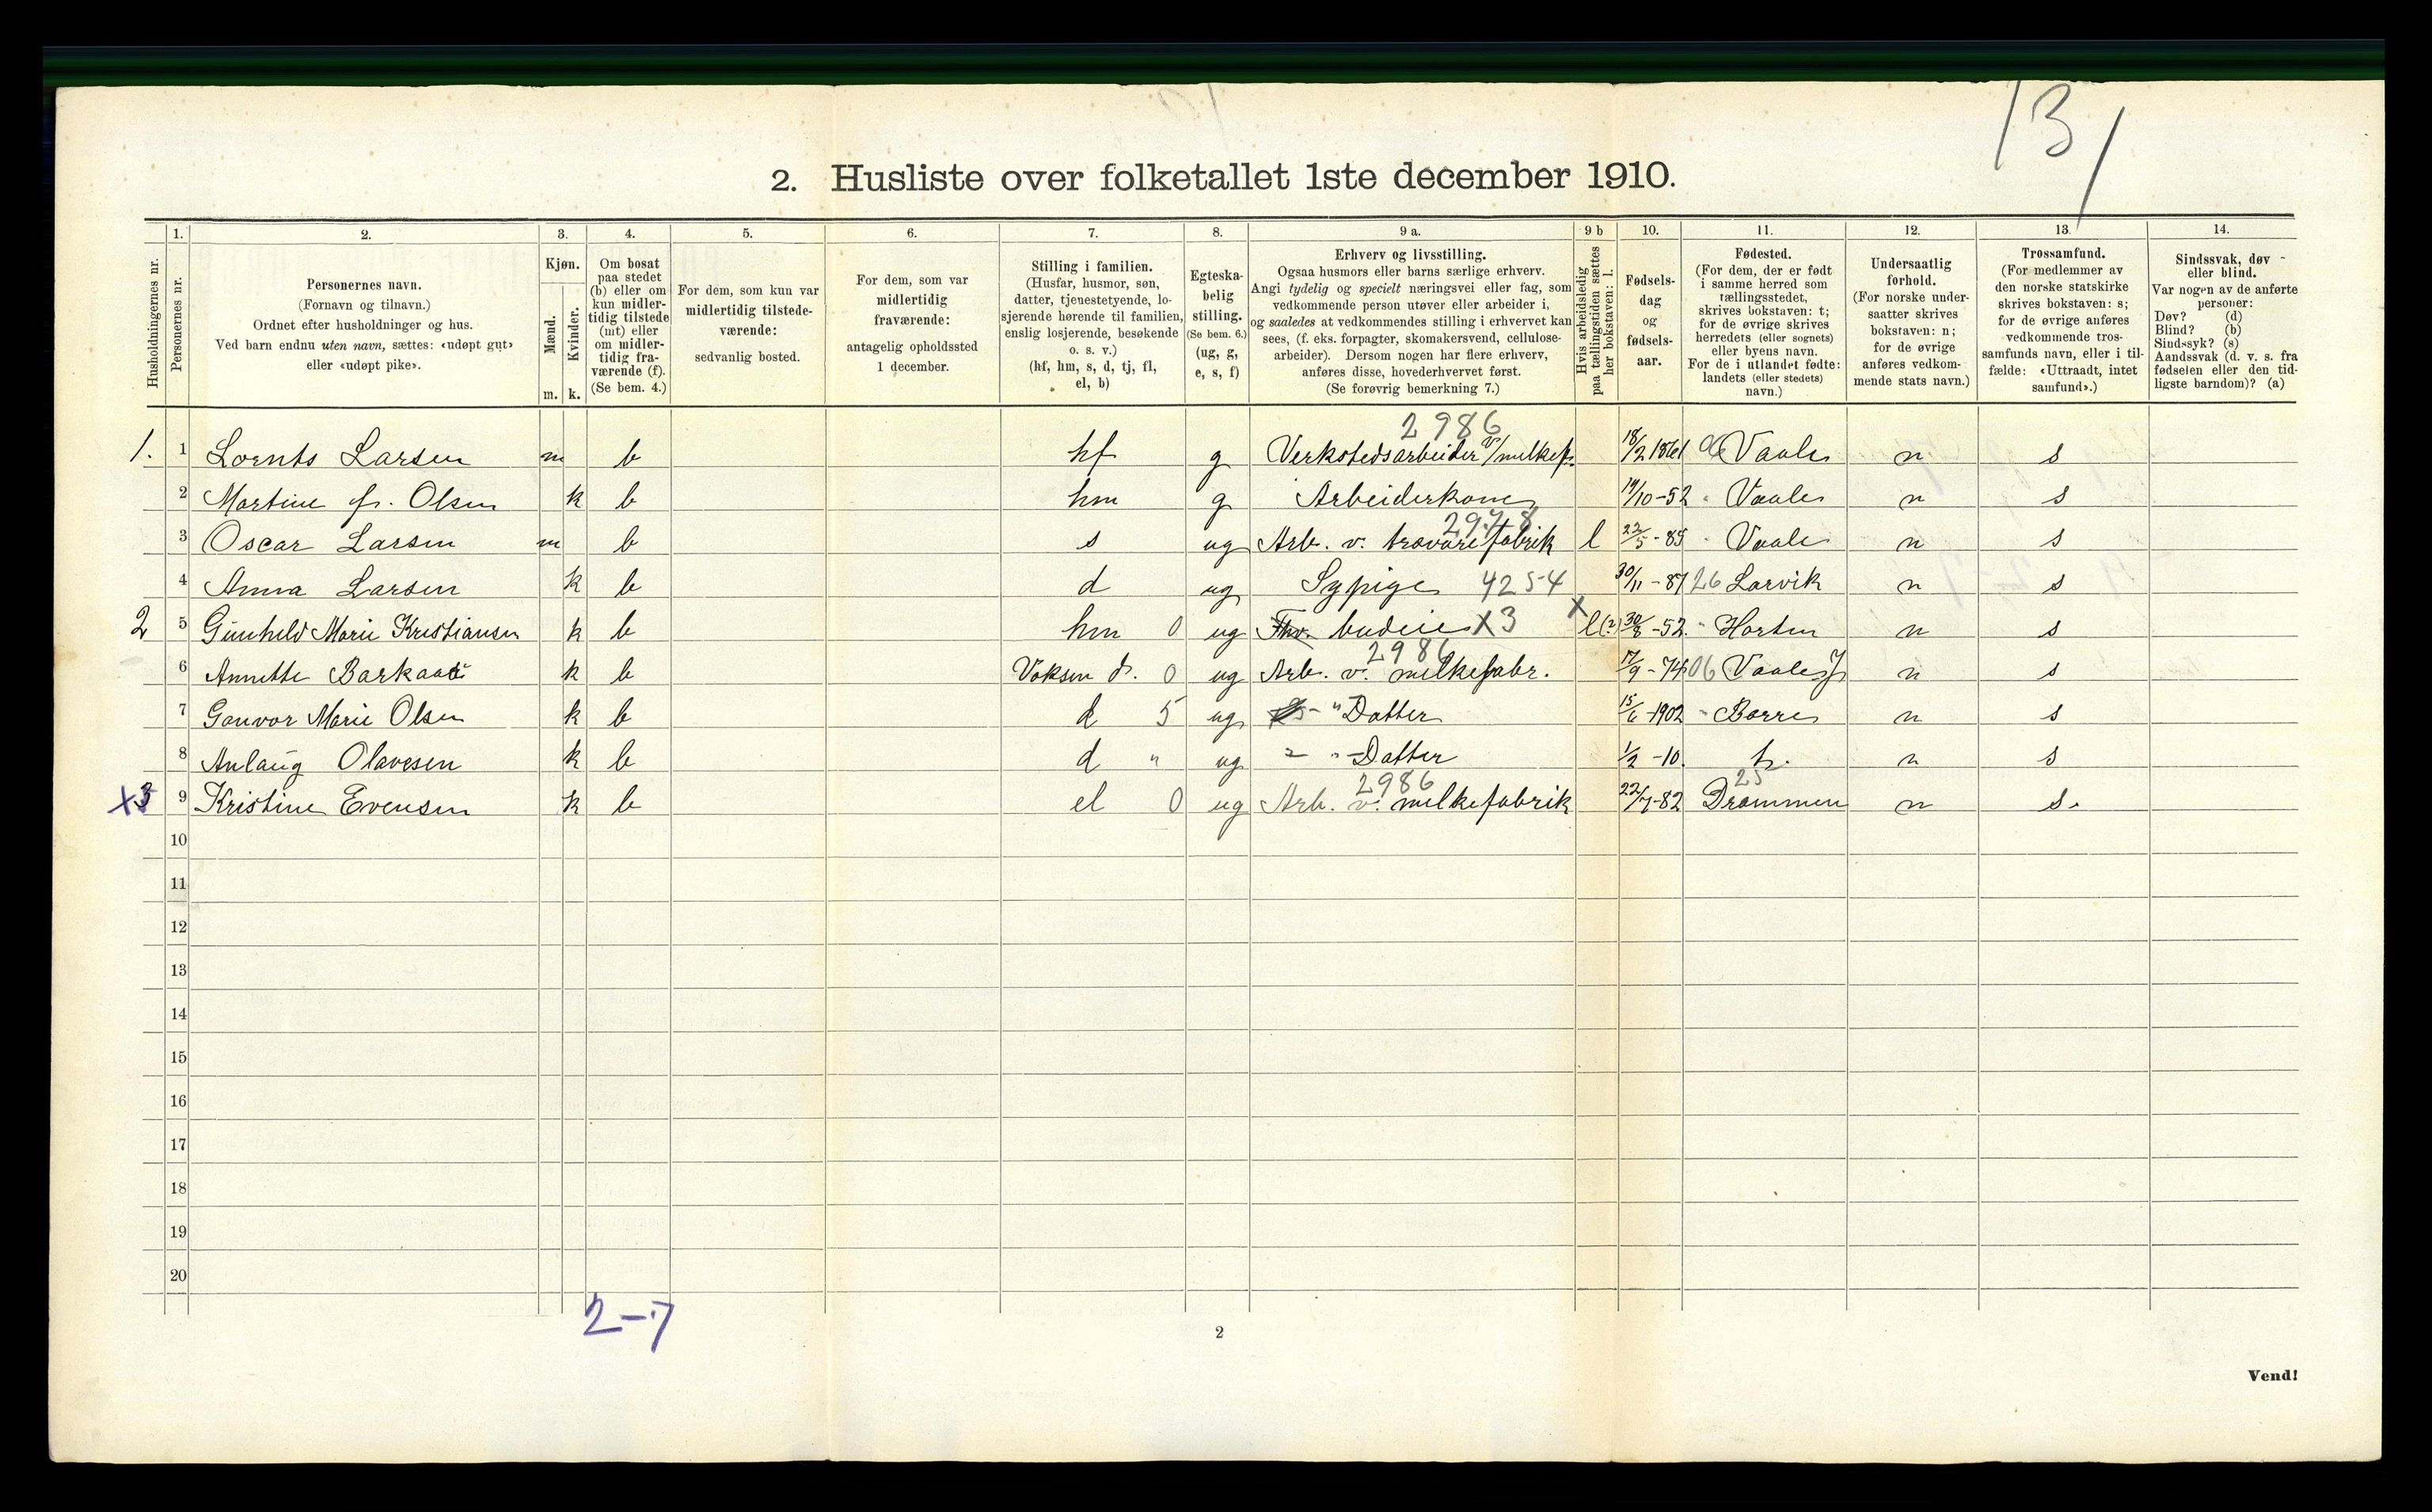 13/
2. Husliste over folketallet 1ste december 1910.
Husholdningernes nr.
1. Personernes nr.
2. Personernes navn.
(Fornavn og tilnavn.)
Ordnet efter husholdninger og hus.
Ved barn endnu uten navn, sættes: «udøpt gut»
eller «udøpt pike».
3. Kjøn.
Mænd. m.
Kvinder. k.
4. Om bosat
paa stedet
(b) eller om
kun midler-
tidig tilstede
(mt) eller
om midler-
tidig fra-
værende (f).
(Se bem. 4.)
5. For dem, som kun var
midlertidig tilstede-
værende:
sedvanlig bosted.
6. For dem, som var
midlertidig
fraværende:
antagelig opholdssted
1 december.
7. Stilling i familien.
(Husfar, husmor, søn,
datter, tjenestetyende, lo-
sjerende hørende til familien,
enslig losjerende, besøkende
o. s. v.)
(hf, hm, s, d, tj, fl,
el, b)
8. Egteska-
belig
stilling.
(Se bem. 6.)
(ug, g,
e, s, f)
9 a. Erhverv og livsstilling.
Ogsaa husmors eller barns særlige erhverv.
Angi tydelig og specielt næringsvei eller fag, som
vedkommende person utøver eller arbeider i,
og saaledes at vedkommendes stilling i erhvervet kan
sees, (f. eks. forpagter, skomakersvend, cellulose-
arbeider). Dersom nogen har flere erhverv,
anføres disse, hovederhvervet først.
(Se forøvrig bemerkning 7.)
9 b Hvis arbeidsledig
paa tællingstiden sættes
her bokstaven: l.
10. Fødsels-
dag
og
fødsels-
aar.
11. Fødested.
(For dem, der er født
i samme herred som
tællingsstedet,
skrives bokstaven: t;
for de øvrige skrives
herredets (eller sognets)
eller byens navn.
For de i utlandet fødte:
landets (eller stedets)
navn.)
12. Undersaatlig
forhold.
(For norske under-
saatter skrives
bokstaven: n;
for de øvrige
anføres vedkom-
mende stats navn.)
13. Trossamfund.
(For medlemmer av
den norske statskirke
skrives bokstaven: s;
for de øvrige anføres
vedkommende tros-
samfunds navn, eller i til-
fælde: «Uttraadt, intet
samfund».)
14. Sindssvak, døv
eller blind.
Var nogen av de anførte
personer:
Døv? (d)
Blind? (b)
Sindssyk? (s)
Aandssvak (d. v. s. fra
fødselen eller den tid-
ligste barndom)? (a)
2986
1. 1 Lornts Larsen m b hf g Verkstedsarbeider v/melkef. 18/2 1861 Vaale n s
2 Martine f. Olsen k b hm g Arbeiderkone 19/10-52 Vaale n s
2978
3 Oscar Larsen m b s ug Arb. v. trævarefabrik l 22/5-85 Vaale n s
4 Anna Larsen k b d ug Sypige 4254 30/11-87 26 Larvik n s
2 5 Gunhild Marie Kristiansen k b hm 0 ug Fhv. budeie X3 x l(?) 30/8-52 Horten n s
2986
6 Annette Barkaad k b Voksen d. 0 ug Arb. v. melkefabr. 17/9-74 06 Vaale n s
7 Gonvor Marie Olsen k b d 5 ug " Datter 15/6-1902 Borre n s
8 Anlaug Olavesen k b d " ug " Datter 1/2-10. t. n s
2986 25
x3 9 Kristine Evensen k b el 0 ug Arb. v. melkefabrik 22/7-82 Drammen n s.
10
11
12
13
14
15
16
17
18
19
20
2-7
2
Vend!